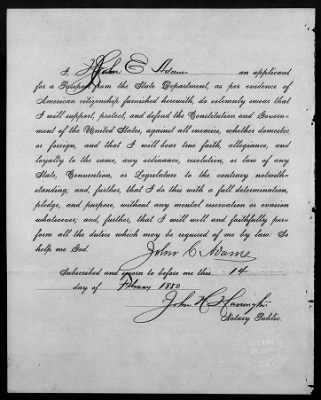 I, John C Adams an applicant
for a Passport from the State Department, as per evidence of
American citizenship furnished herewith, do solemnly swear that
I will support, protect, and defend the Constitution and Govern-
ment of the United States, against all enemies, whether domestic
or foreign, and that I will bear true faith, allegiance, and
loyalty to the same, any ordinance, resolution, or law of any
State, Convention, or Legislature to the contrary notwith-
standing, and, further, that I do this with a full determination,
pledge, and purpose, without any mental reservation or evasion
whatsoever; and, further, that I will well and faithfully per-
form all the duties which may be required of me by law: So
help me God.
John C. Adams
Subscribed and sworn to before me this 14
day of February 1880
John H Harrington
Notary Public.